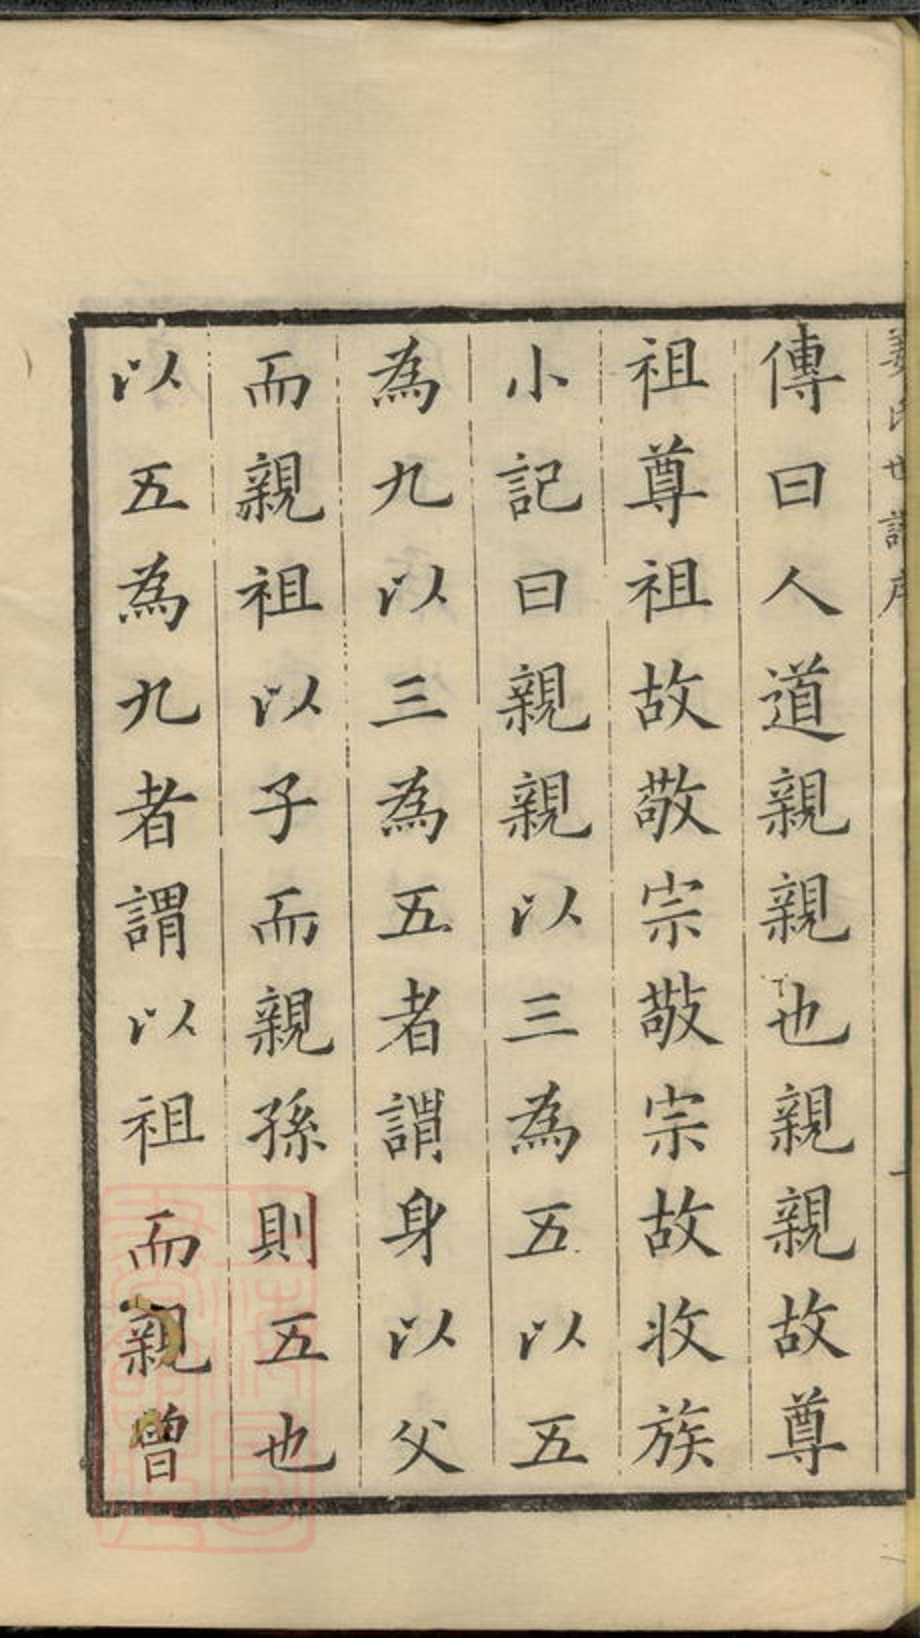 姜氏世譜序
一
傳曰人道親親也親親故尊
祖尊祖故敬宗敬宗故收族
小記曰親親以三為五以五
為九以三為五者謂身以父
而親祖以子而親孫則五也
以五為九者謂以祖而親曾